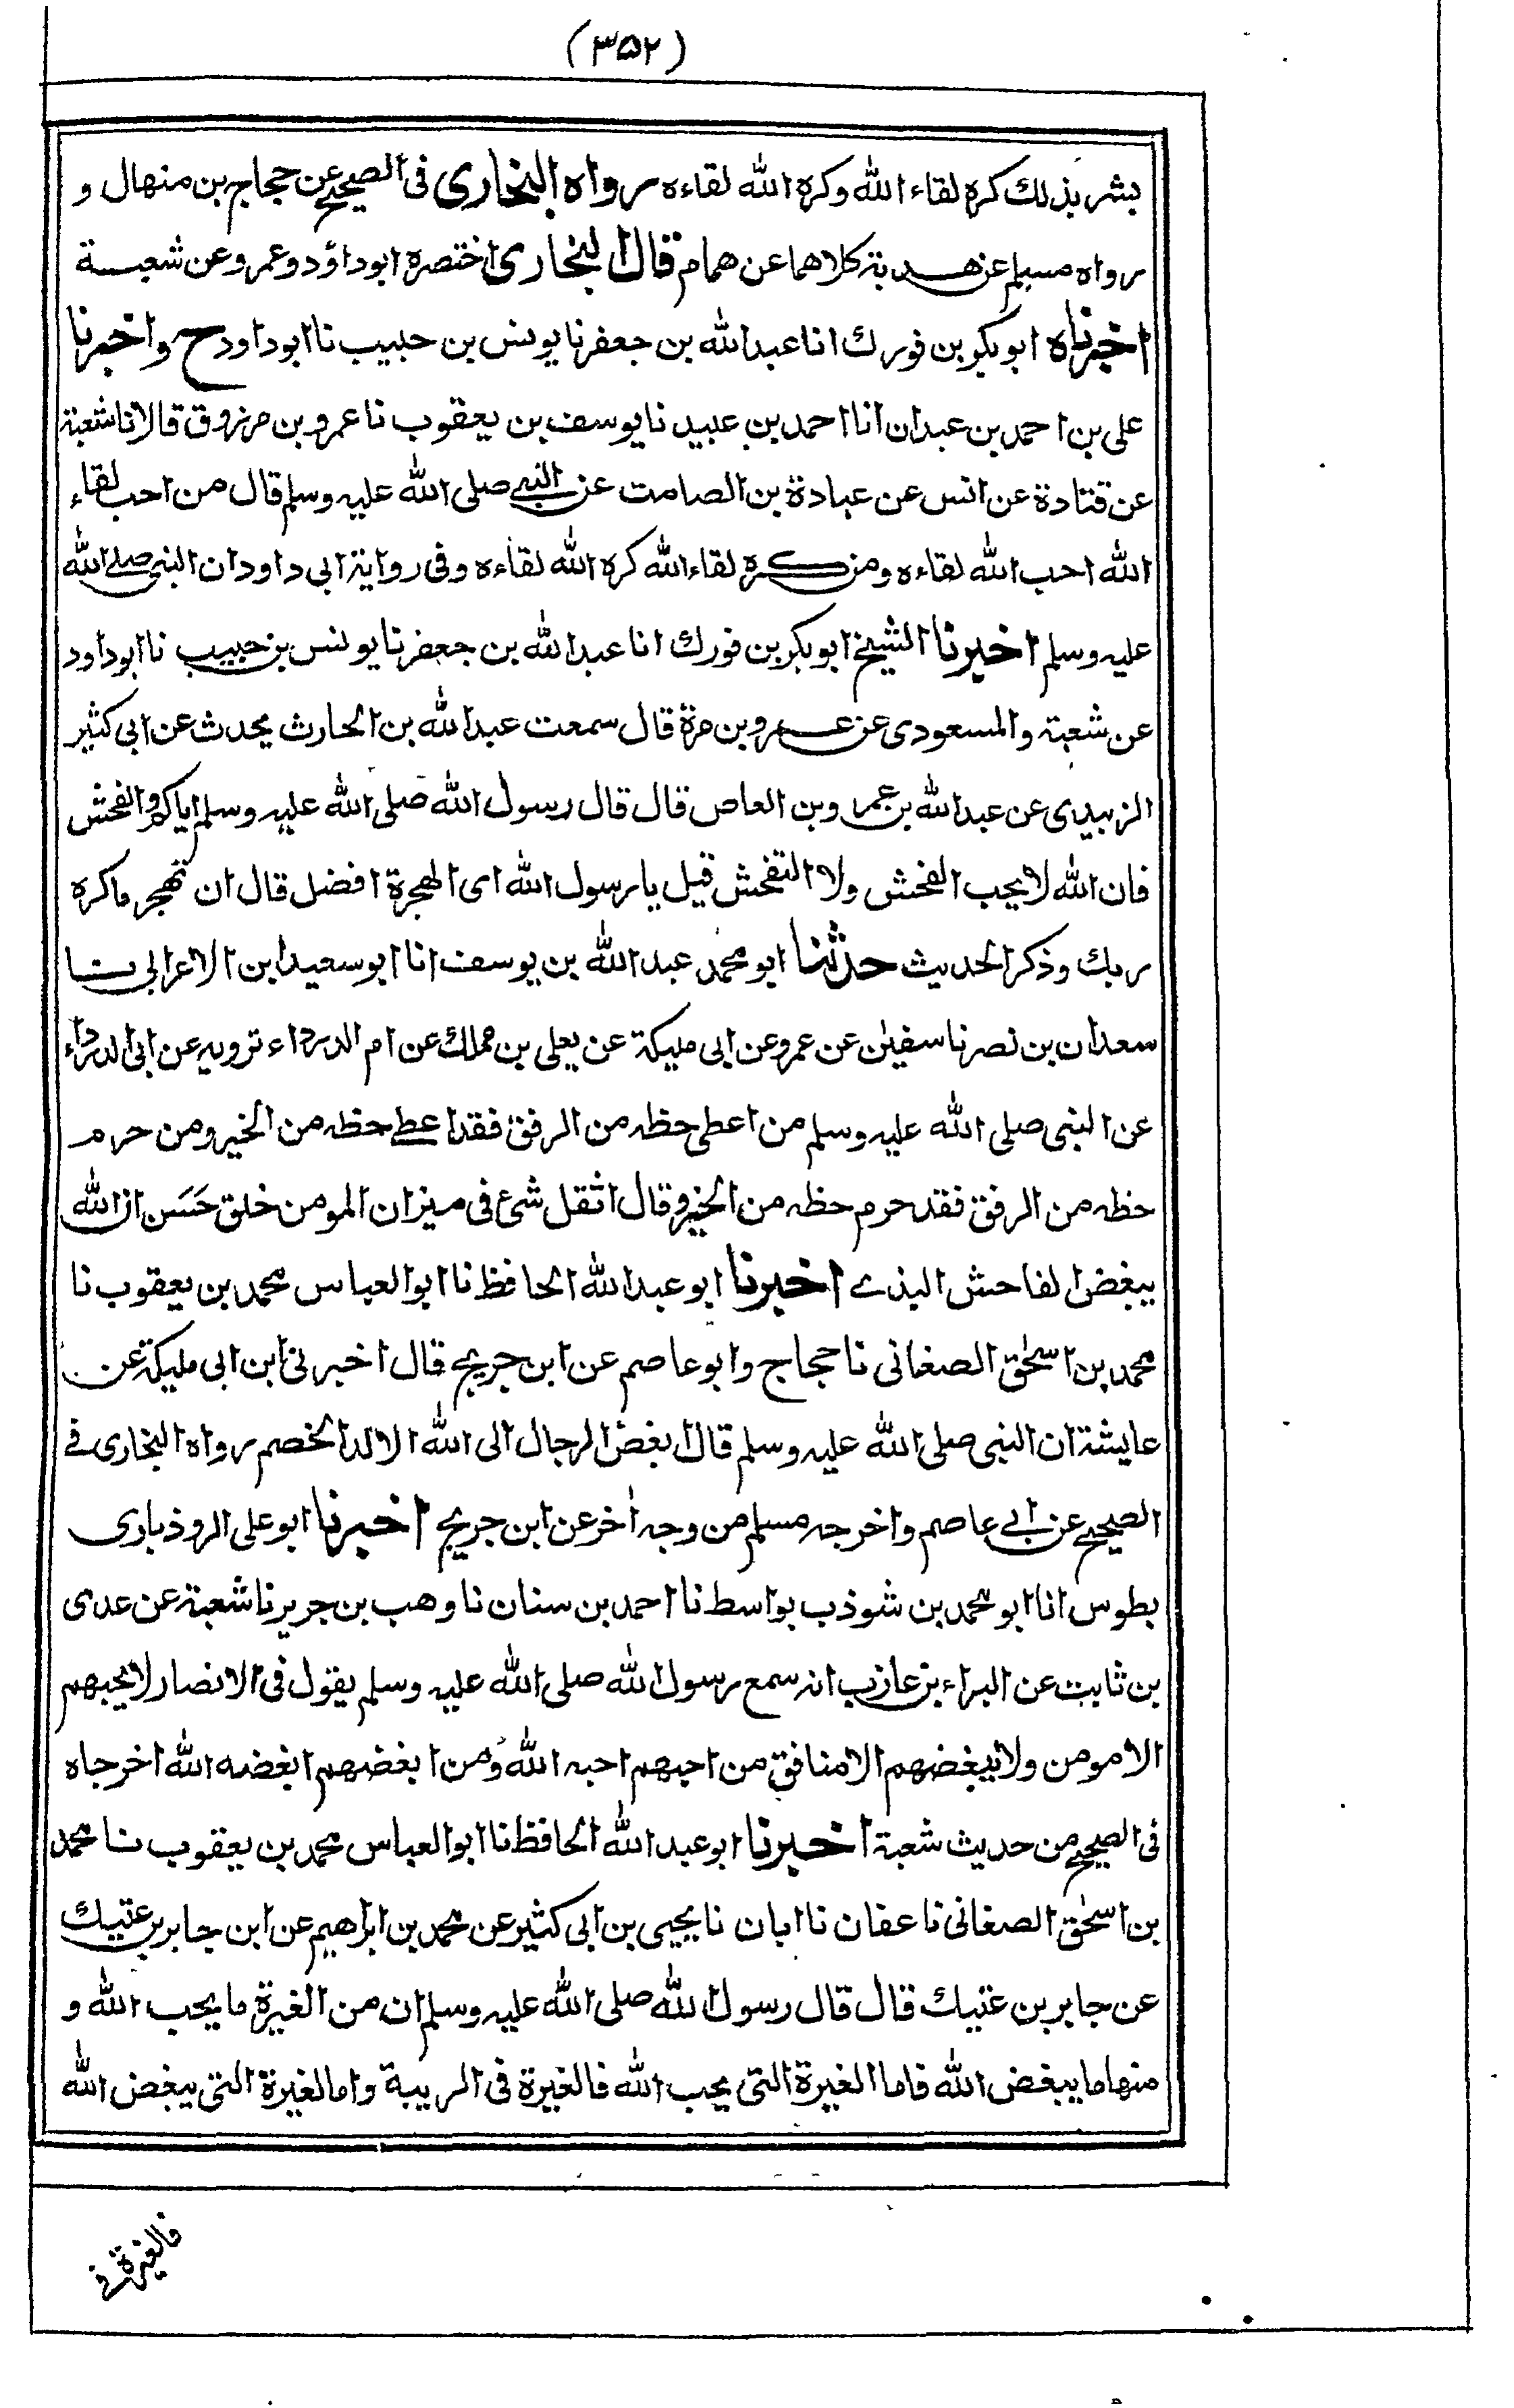 (۳۵۲)
بشر بذلك كره لقاء الله وكره الله لقاءه رواه البخاری فی الصحیح عن حجاج بن منهال و
رواه مسلم عن هدبة كلاهما عن همام قال البخاری اختصره ابوداؤد وعمرو عن شعبة
اخبرناه ابوبكر بن فورك انا عبدالله بن جعفر نا یونس بن حبیب نا ابوداود ح واخبرنا
علی بن احمد بن عبدان انا احمد بن عبید نا یوسف بن یعقوب نا عمرو بن مرزوق قالا نا شعبة
عن قتادة عن انس عن عبادة بن الصامت عن النبی صلی الله علیه وسلم قال من احب لقاء
الله احب الله لقاءه ومن كره لقاء الله كره الله لقاءه وفی روایة ابی داود ان النبی صلے الله
علیه وسلم اخبرنا الشیخ ابوبكر بن فورك انا عبدالله بن جعفر نا یونس بن حبیب نا ابوداود
عن شعبة والمسعودی عن عمرو بن مرة قال سمعت عبدالله بن الحارث یحدث عن ابی كثیر
الزبیدی عن عبدالله بن عمرو بن العاص قال قال رسول الله صلی الله علیه وسلم ایاكم والفحش
فان الله لا یحب الفحش ولا التفحش قیل یا رسول الله ای الهجرة افضل قال ان تهجر ما كره
ربك وذكر الحدیث حدثنا ابو محمد عبدالله بن یوسف انا ابو سعید ابن الاعرابی نا
سعدان بن نصر نا سفیٰن عن عمرو عن ابی ملیكة عن یعلی بن مملك عن ام الدرداء ترویه عن ابی الدرداء
عن النبی صلی الله علیه وسلم من اعطی حظه من الرفق فقد اعطے حظه من الخیر ومن حرم
حظه من الرفق فقد حرم حظه من الخیر وقال اثقل شیٔ فی میزان المومن خلق حَسَن ان الله
یبغض الفاحش البذے اخبرنا ابو عبدالله الحافظ نا ابوالعباس محمد بن یعقوب نا
محمد بن اسحٰق الصغانی نا حجاج وابو عاصم عن ابن جریج قال اخبرنی ابن ابی ملیكة عن
عایشة ان النبی صلی الله علیه وسلم قال ابغض الرجال الی الله الالد الخصم رواه البخاری فے
الصحیح عن ابے عاصم واخرجه مسلم من وجه اٰخر عن ابن جریج اخبرنا ابو علی الروذباری
بطوس انا ابو محمد بن شوذب بواسط نا احمد بن سنان نا وهب بن جریر نا شعبة عن عدی
بن ثابت عن البراء بن عازب انه سمع رسول الله صلی الله علیه وسلم یقول فی الانصار لا یحبهم
الا مومن ولا یبغضهم الا منافق من احبهم احبه الله ومن ابغضهم ابغضه الله اخرجاه
فی الصحیح من حدیث شعبة اخبرنا ابو عبدالله الحافظ نا ابوالعباس محمد بن یعقوب نا محمد
بن اسحٰق الصغانی نا عفان نا ابان نا یحیی بن ابی كثیر عن محمد بن ابراهیم عن ابن جابر بن عتیك
عن جابر بن عتیك قال قال رسول الله صلی الله علیه وسلم ان من الغیرة ما یحب الله و
منها ما یبغض الله فاما الغیرة التی یحب الله فالغیرة فی الریبة واما الغیرة التی یبغض الله
فالغیرة فی